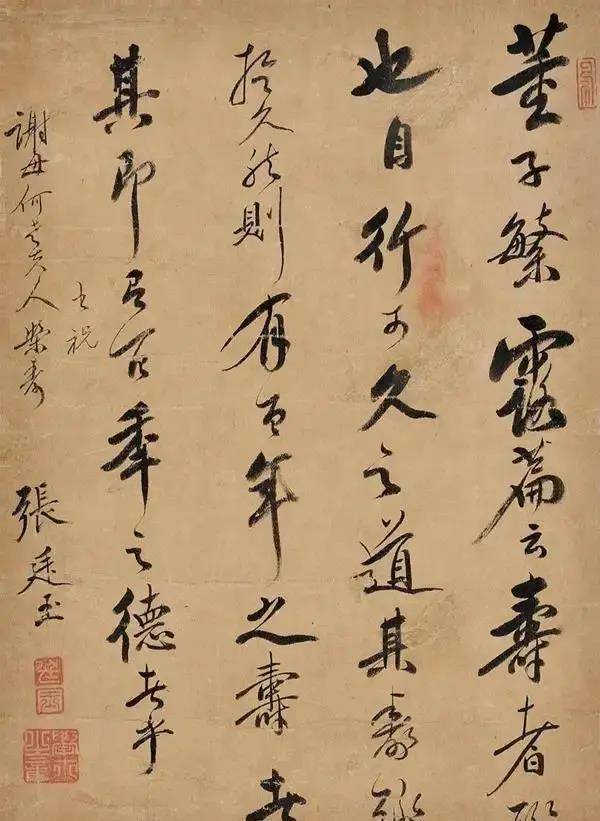 董子繁露篇云壽者
也自行可久之道其壽
於久然則有百年之壽者
其即有百秊之德者乎
謝母何老夫人榮壽
祝
張廷玉